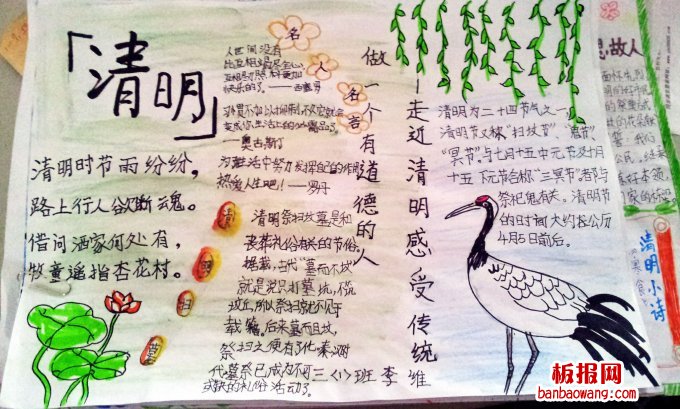 「清明」
清明时节雨纷纷，
路上行人欲断魂。
借问酒家何处有，
牧童遥指杏花村。
名
人
名
言
人世间没有
比互相竭尽全心、
互相照料更加
快乐的了。——西塞罗
习惯不加以抑制，不久它就会
变成你生活上的必需品了。
——奥古斯丁
为在生活中努力发挥自己的作用，
热爱人生吧！——罗丹
清
明
扫
墓
清明祭扫坟墓是和
丧葬礼俗有关的节俗。
据载，古代“墓而不坟”
就是说只打墓坑，不筑
坟丘，所以祭扫就不见于
载籍。后来墓而且坟，
祭扫之便有了
代墓祭已成为不可
或缺的礼俗活动了。
三（1）班 李维
做一个有道德的人
—走近清明感受传统
清明为二十四节气之一，
清明节又称“扫坟节”、“鬼节”
“冥节”，与七月十五中元节及十月
十五下元节合称“三冥节”，都与
祭祀鬼有关。清明节
的时间大约在公历
4月5日前后。
思故人
清明小诗
寒食
板报网
www.banbaowang.com